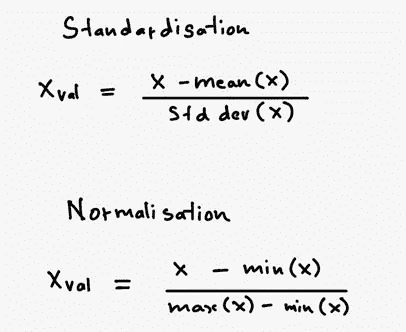 Standardisation
Xval = x - mean(x)
std dev(x)
Normalisation
Xval = x - min(x)
max(x) - min(x)